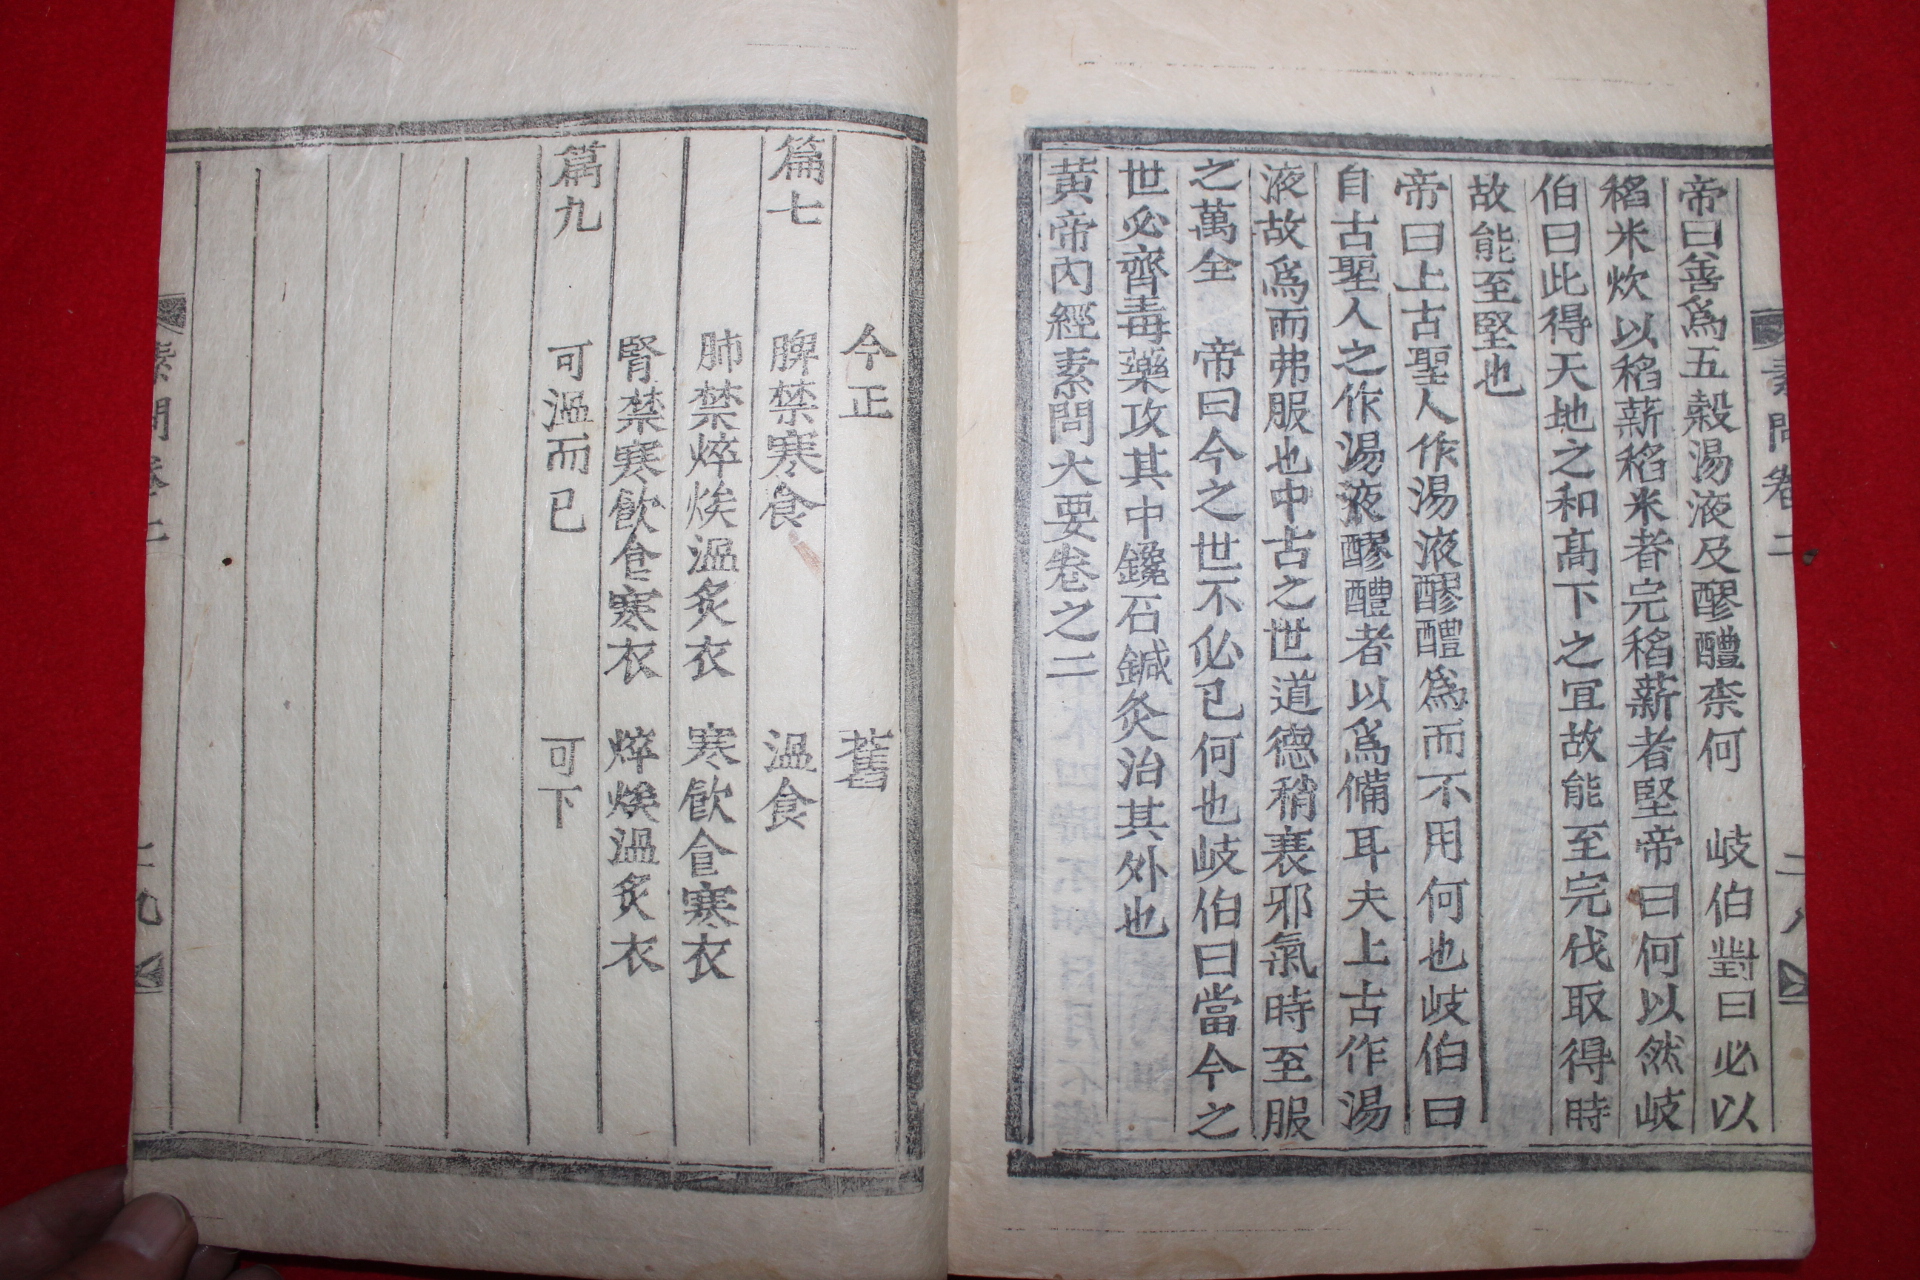 素問卷二
二八
帝曰善爲五穀湯液及醪醴柰何 岐伯對曰必以
稻米炊以稻薪稻米者完稻薪者堅帝曰何以然岐
伯曰此得天地之和髙下之冝故能至完伐取得時
故能至堅也
帝曰上古聖人作湯液醪醴爲而不用何也岐伯曰
自古聖人之作湯液醪醴者以爲備耳夫上古作湯
液故爲而弗服也中古之世道德稍衰邪氣時至服
之萬全 帝曰今之世不必已何也岐伯曰當今之
世必齊毒藥攻其中鑱石鍼灸治其外也
黃帝內經素問大要卷之二
今正 舊
篇七 脾禁寒食 溫食
肺禁焠㶼溫炙衣 寒飮食寒衣
腎禁寒飮食寒衣 焠㶼溫炙衣
篇九 可溫而已 可下
素問卷二
二九